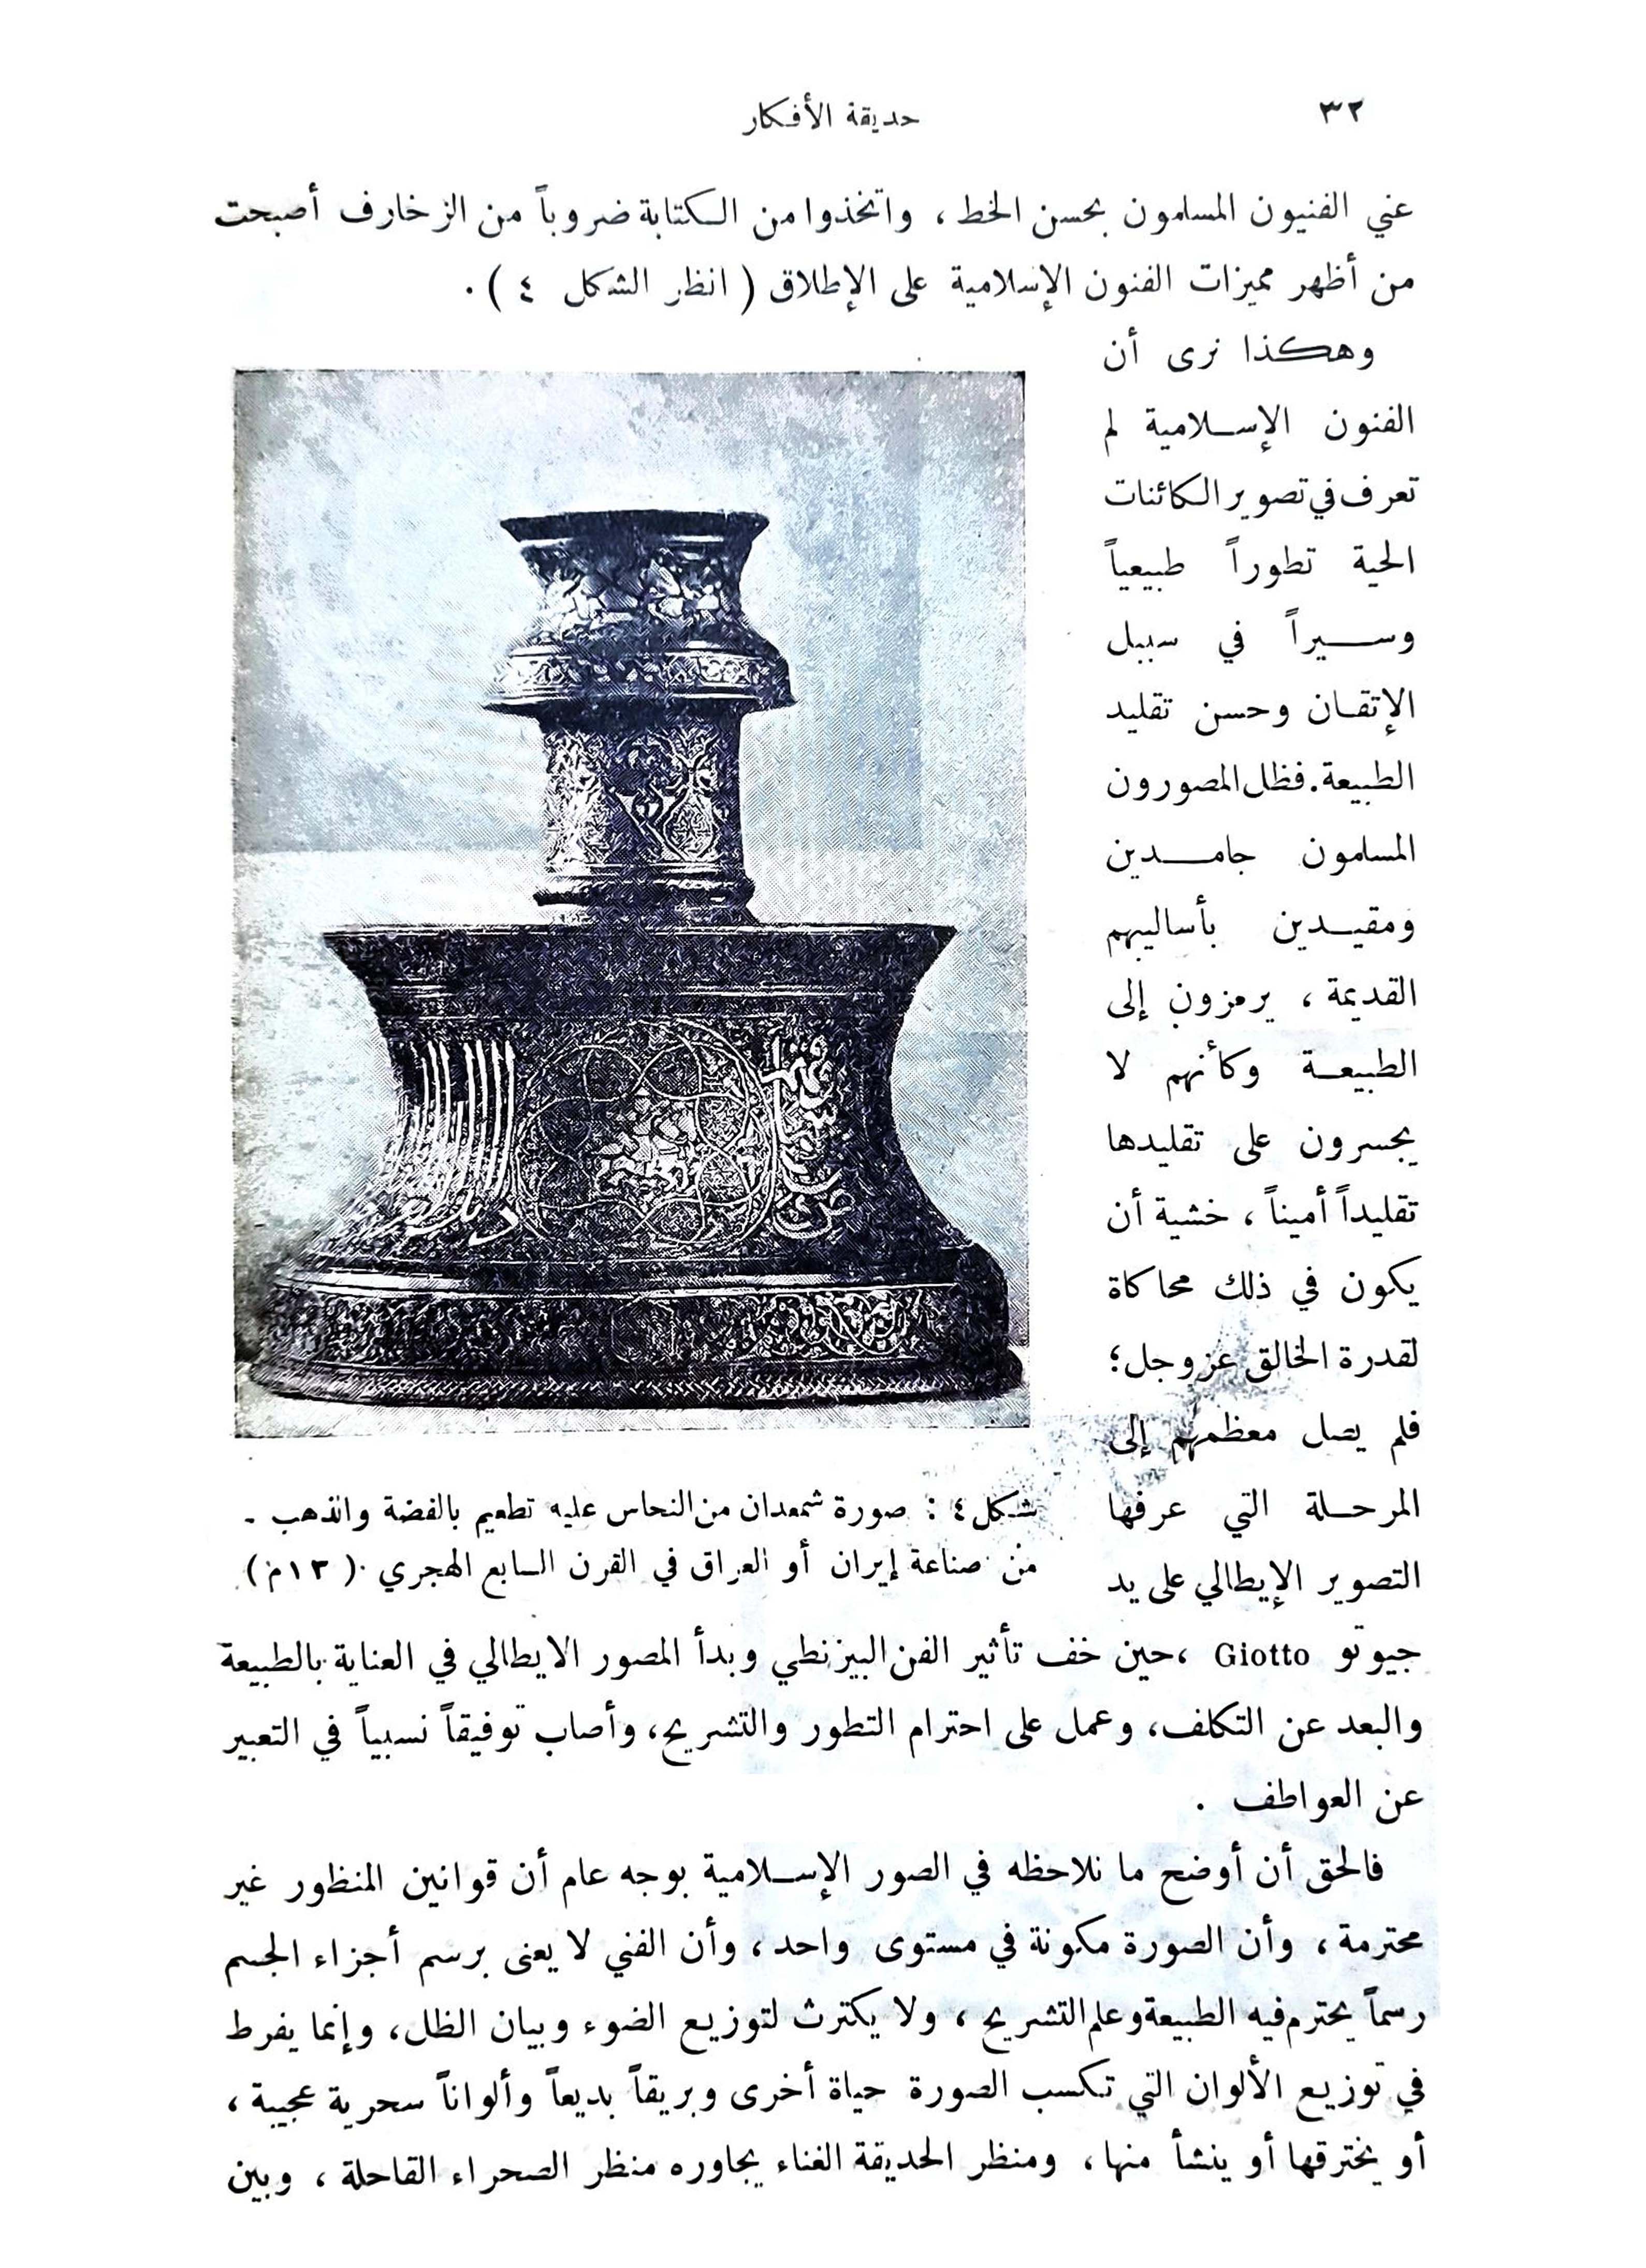 ٣٢
حديقة الأفكار
عني الفنيون المسلمون بحسن الخط ، واتخذوا من الكتابة ضروباً من الزخارف أصبحت
من أظهر مميزات الفنون الإسلامية على الإطلاق ( انظر الشكل ٤ ) .
وهكذا نرى أن
الفنون الإسلامية لم
تعرف في تصوير الكائنات
الحية تطوراً طبيعياً
وسيراً في سبيل
الإتقان وحسن تقليد
الطبيعة . فظل المصورون
المسلمون جامدين
ومقيدين بأساليبهم
القديمة ، يرمزون إلى
الطبيعة وكأنهم لا
يجسرون على تقليدها
تقليداً أميناً ، خشية أن
يكون في ذلك محاكاة
لقدرة الخالق عز وجل ؛
فلم يصل معظمهم إلى
المرحلة التي عرفها
التصوير الإيطالي على يد
شكل ٤ : صورة شمعدان من النحاس عليه تطعيم بالفضة والذهب -
من صناعة إيران أو العراق في القرن السابع الهجري ( ١٣ م )
جيوتو Giotto ، حين خف تأثير الفن البيزنطي وبدأ المصور الايطالي في العناية بالطبيعة
والبعد عن التكلف ، وعمل على احترام التطور والتشريح ، وأصاب توفيقاً نسبياً في التعبير
عن العواطف .
فالحق أن أوضح ما نلاحظه في الصور الإسلامية بوجه عام أن قوانين المنظور غير
محترمة ، وأن الصورة مكونة في مستوى واحد ، وأن الفني لا يعنى برسم أجزاء الجسم
رسماً يحترم فيه الطبيعة وعلم التشريح ، ولا يكترث لتوزيع الضوء وبيان الظل ، وإنما يفرط
في توزيع الألوان التي تكسب الصورة حياة أخرى وبريقاً بديعاً وألواناً سحرية عجيبة ،
أو يخترقها أو ينشأ منها ، ومنظر الحديقة الغناء يجاوره منظر الصحراء القاحلة ، وبين